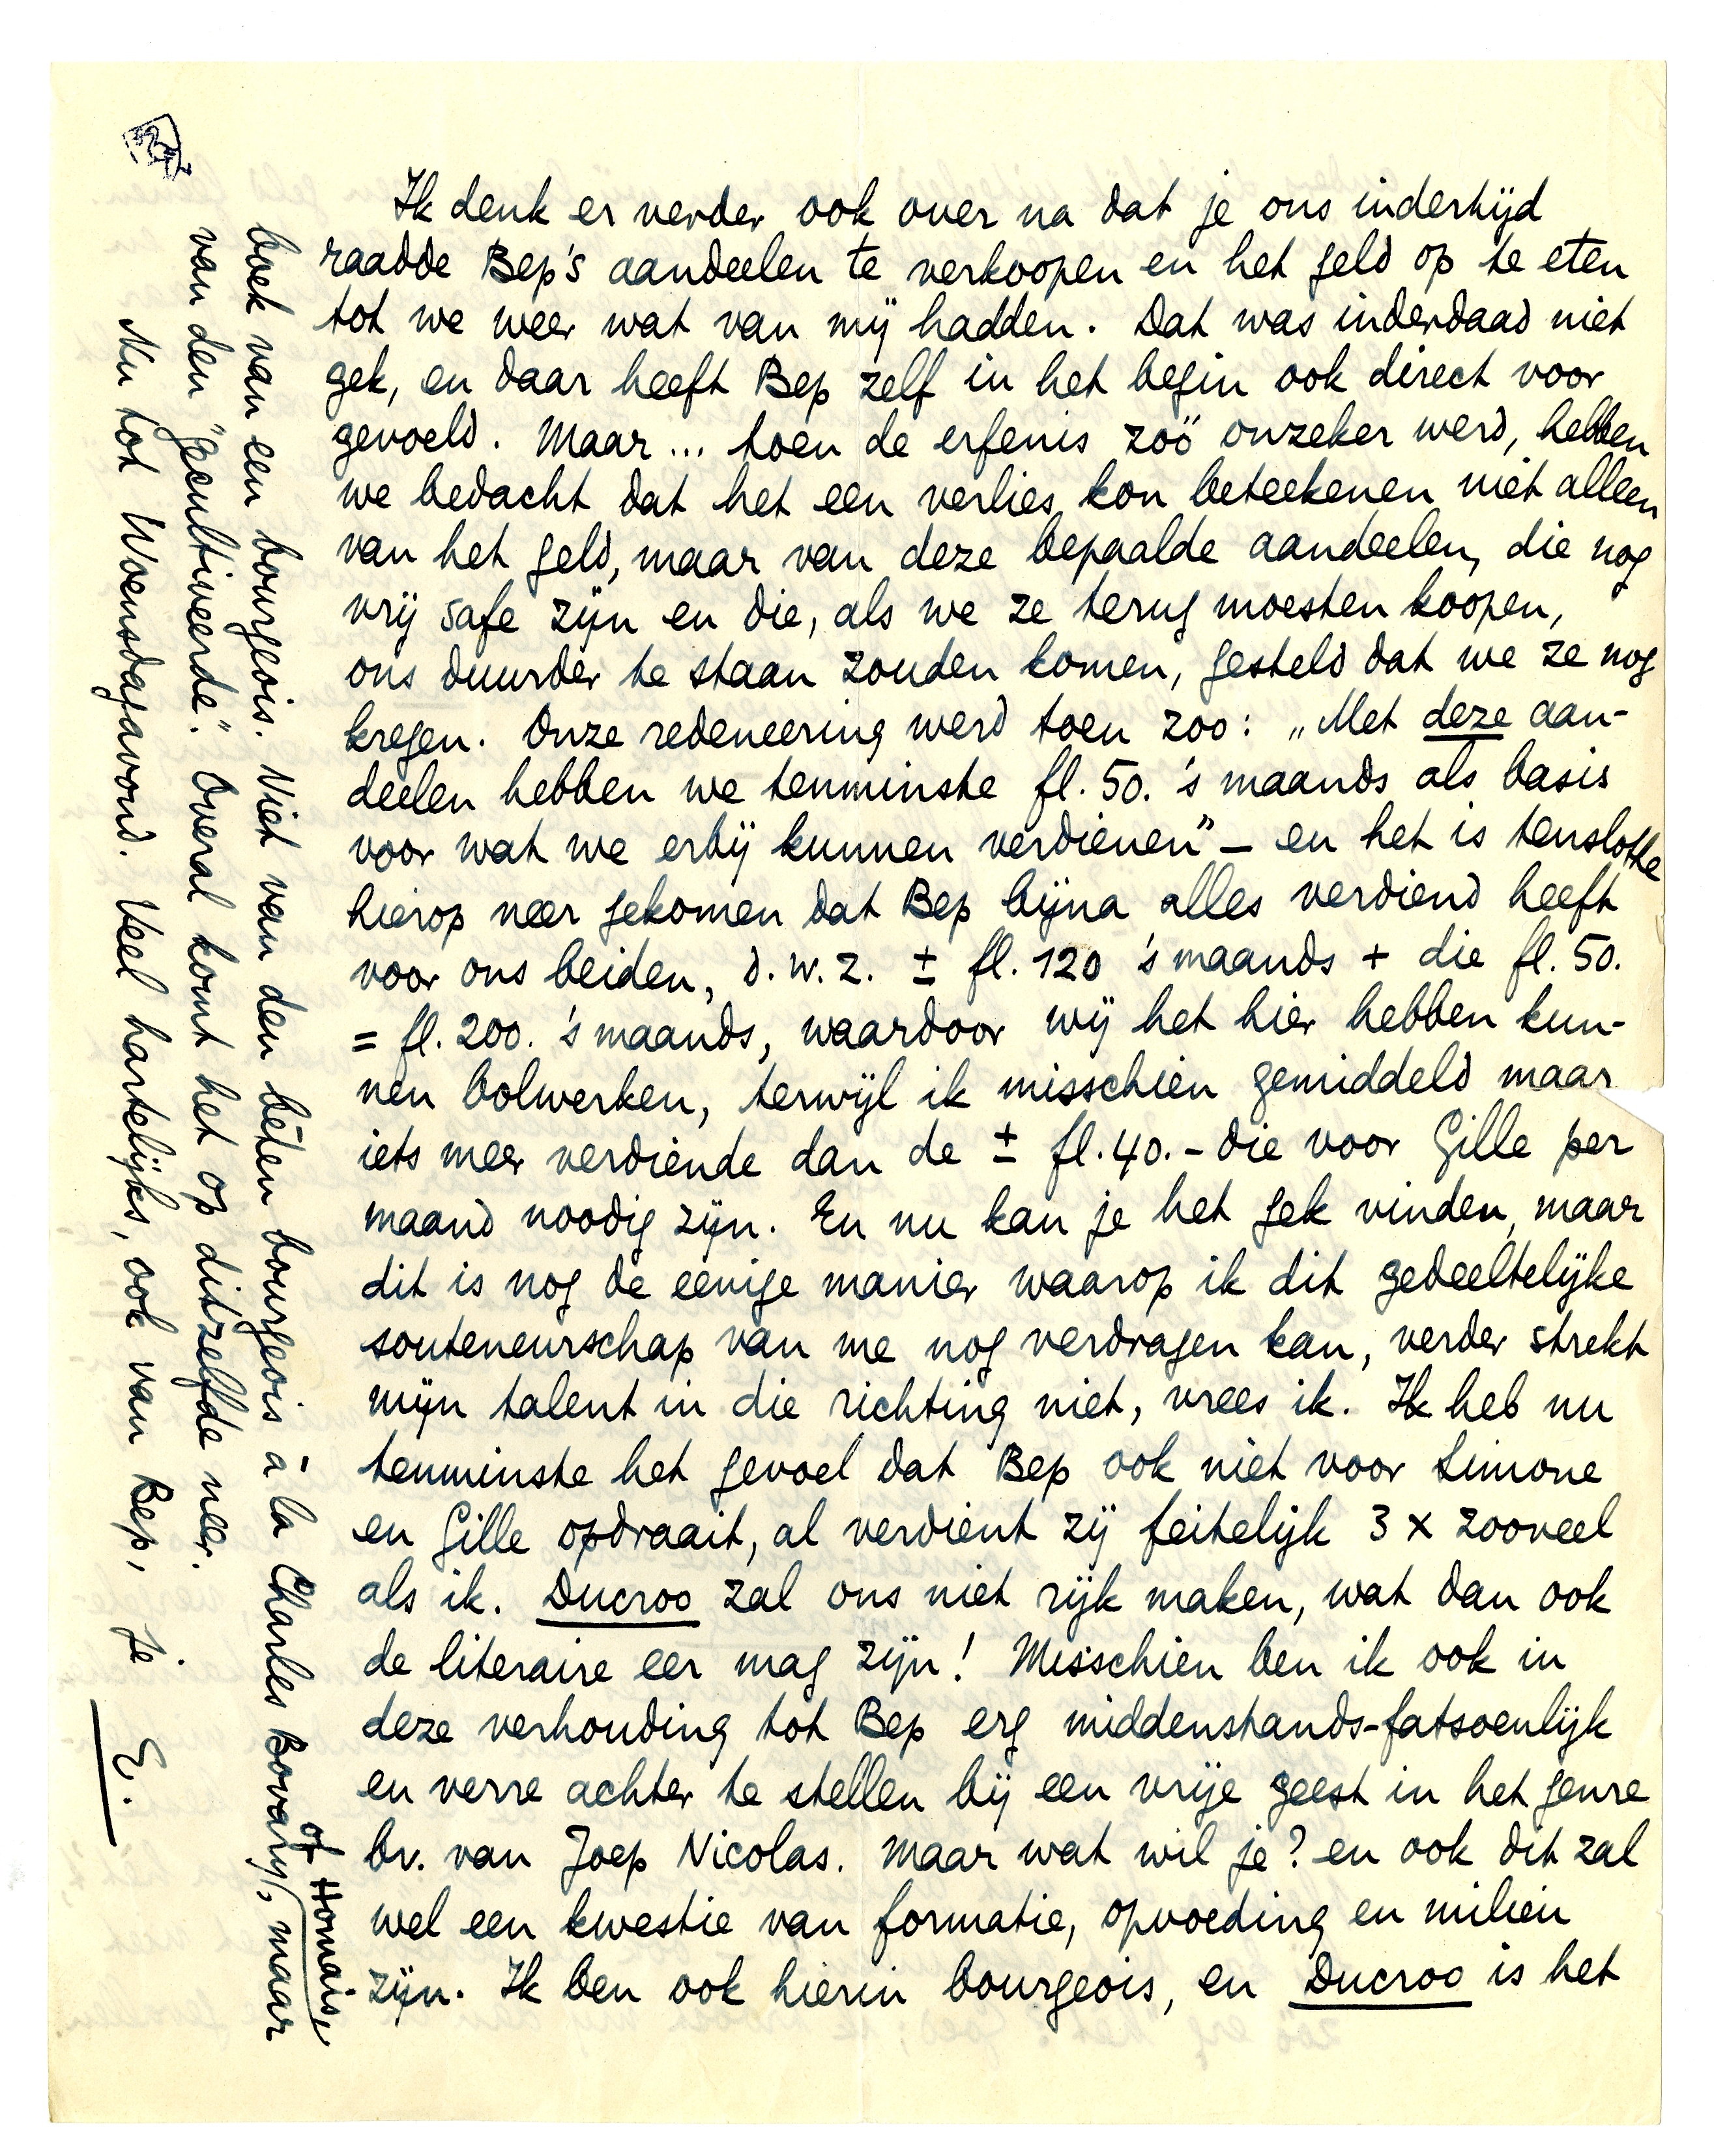 Ik denk er verder ook over na dat je ons indertijd
raadde Bep's aandeelen te verkoopen en het geld op te eten
tot we weer wat van mij hadden. Dat was inderdaad niet
gek, en daar heeft Bep zelf in het begin ook direct voor
gevoeld. Maar... toen de erfenis zoo onzeker werd, hebben
we bedacht dat het een verlies kon beteekenen niet alleen
van het geld, maar van deze bepaalde aandeelen, die nog
vrij safe zijn en die, als we ze terug moesten koopen,
ons duurder te staan zouden komen, gesteld dat we ze nog
kregen. Onze redeneering werd toen zoo: „Met deze aan-
deelen hebben we tenminste fl. 50. 's maands als basis
voor wat we erbij kunnen verdienen" – en het is tenslotte
hierop neer gekomen dat Bep bijna alles verdiend heeft
voor ons beiden, d.w.z. ± fl. 120 's maands + die fl. 50.
= fl. 200. 's maands, waardoor wij het hier hebben kun-
nen bolwerken, terwijl ik misschien gemiddeld maar
iets meer verdiende dan de ± fl. 40.- die voor Gille per
maand noodig zijn. En nu kan je het gek vinden, maar
dit is nog de eenige manier waarop ik dit gedeeltelijke
souteneurschap van me nog verdragen kan, verder strekt
mijn talent in die richting niet, vrees ik. Ik heb nu
tenminste het gevoel dat Bep ook niet voor Simone
en Gille opdraait, al verdient zij feitelijk 3 x zooveel
als ik. Ducroo zal ons niet rijk maken, wat dan ook
de literaire eer mag zijn! Misschien ben ik ook in
deze verhouding tot Bep erg middenstands-fatsoenlijk
en verre achter te stellen bij een vrije geest in het genre
bv. van Joep Nicolas. Maar wat wil je? en ook dit zal
wel een kwestie van formatie, opvoeding en milieu
zijn. Ik ben ook hierin bourgeois, en Ducroo is het
boek van een bourgeois. Niet van den bêten bourgeois à la Charles Bovary, of Homais, maar
van den "gecultiveerde". Overal komt het op ditzelfde neer.
Nu tot Woensdagavond. Veel hartelijks, ook van Bep, je E.